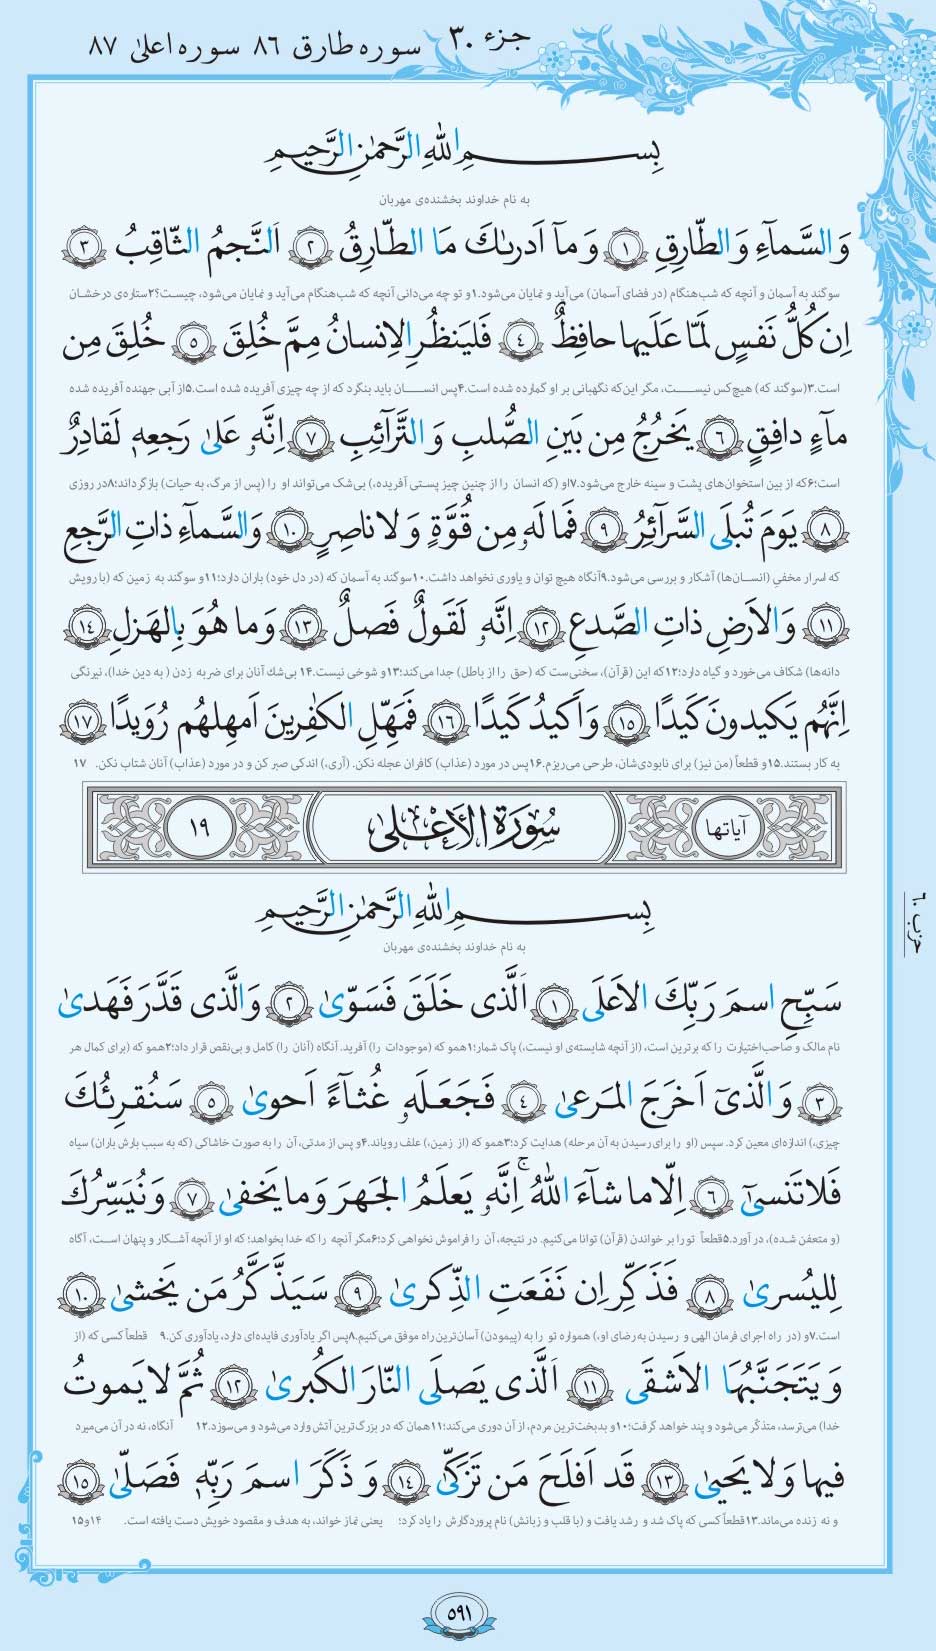 جزء ۳۰ سوره طارق ۸۶ سوره اعلیٰ ۸۷
بِسـمِ اللّٰهِ الرَّحمٰنِ الرَّحیمِ
به نام خداوند بخشنده‌ی مهربان
وَالسَّمآءِ وَالطّارِقِ ﴿۱﴾ وَ مآ اَدرىٰكَ مَا الطّارِقُ ﴿۲﴾ اَلنَّجمُ الثّاقِبُ ﴿۳﴾
سوگند به آسمان و آنچه که شب‌هنگام (در فضای آسمان) می‌آید و نمایان می‌شود.۱و تو چه می‌دانی آنچه که شب‌هنگام می‌آید و نمایان می‌شود، چیست؟۲ستاره‌ی درخشان
اِن كُلُّ نَفسٍ لَمّا عَلَیها حافِظٌ ﴿۴﴾ فَلیَنظُرِ الاِنسانُ مِمَّ خُلِقَ ﴿۵﴾ خُلِقَ مِن
است.۳(سوگند که) هیچ‌کس نیســت، مگر این‌که نگهبانی بر او گمارده شده است.۴پس انســان باید بنگرد که از چه چیزی آفریده شده است.۵از آبی جهنده آفریده شده
مآءٍ دافِقٍ ﴿۶﴾ یَخرُجُ مِن بَینِ الصُّلبِ وَ التَّرآئِبِ ﴿۷﴾ اِنَّهٗ عَلیٰ رَجعِهٖ لَقادِرٌ
است؛۶که از بین استخوان‌های پشت و سینه خارج می‌شود.۷او (که انسان را از چنین چیز پستی آفریده،) بی‌شک می‌تواند او را (پس از مرگ، به حیات) بازگرداند؛۸در روزی
﴿۸﴾ یَومَ تُبلَى السَّرآئِرُ ﴿۹﴾ فَما لَهٗ مِن قُوَّةٍ وَ لا ناصِرٍ ﴿۱۰﴾ وَالسَّمآءِ ذاتِ الرَّجعِ
که اسرار مخفیِ (انسان‌ها) آشکار و بررسی می‌شود.۹آنگاه هیچ توان و یاوری نخواهد داشت.۱۰سوگند به آسمان که (در دل خود) باران دارد؛۱۱و سوگند به زمین که (با رویش
﴿۱۱﴾ وَالاَرضِ ذاتِ الصَّدعِ ﴿۱۲﴾ اِنَّهٗ لَقَولٌ فَصلٌ ﴿۱۳﴾ وَما هُوَ بِالهَزلِ ﴿۱۴﴾
دانه‌ها) شکاف می‌خورد و گیاه دارد؛۱۲که این (قرآن)، سخنی‌ست که (حق را از باطل) جدا می‌کند؛۱۳و شوخی نیست.۱۴ بی‌شك آنان برای ضربه زدن ( به دین خدا)، نیرنگی
اِنَّهُم یَكیدونَ كَیدًا ﴿۱۵﴾ وَ اَكیدُ كَیدًا ﴿۱۶﴾ فَمَهِّلِ الكٰفِرینَ اَمهِلهُم رُوَیدًا ﴿۱۷﴾
به کار بستند.۱۵و قطعاً (من نیز) برای نابودی‌شان، طرحی می‌ریزم.۱۶پس در مورد (عذاب) کافران عجله نکن. (آری،) اندکی صبر کن و در مورد (عذاب) آنان شتاب نکن. ۱۷
آیاتها سُورَةُ الأَعْلىٰ ۱۹
حزب ۶۰
بِسـمِ اللّٰهِ الرَّحمٰنِ الرَّحیمِ
به نام خداوند بخشنده‌ی مهربان
سَبِّحِ اسمَ رَبِّكَ الاَعلَى ﴿۱﴾ اَلَّذی خَلَقَ فَسَوّىٰ ﴿۲﴾ وَالَّذی قَدَّرَ فَهَدىٰ
نام مالک و صاحب‌اختیارت را که برترین است، (از آنچه شایسته‌ی او نیست،) پاک شمار؛۱همو که (موجودات را) آفرید. آنگاه (آنان را) کامل و بی‌نقص قرار داد؛۲همو که (برای کمال هر
﴿۳﴾ وَالَّذیٓ اَخرَجَ المَرعىٰ ﴿۴﴾ فَجَعَلَهٗ غُثآءً اَحوىٰ ﴿۵﴾ سَنُقرِئُكَ
چیزی،) اندازه‌ای معین کرد. سپس (او را برای رسیدن به آن مرحله) هدایت کرد؛۳همو که (از زمین،) علف رویاند.۴و پس از مدتی، آن را به صورت خاشاکی (که به سبب بارش باران) سیاه
فَلا تَنسىٰٓ ﴿۶﴾ اِلّا ما شآءَ اللّٰهُ ۚ اِنَّهٗ یَعلَمُ الجَهرَ وَ ما یَخفىٰ ﴿۷﴾ وَ نُیَسِّرُكَ
(و متعفن شده)، در آورد.۵قطعاً تو را بر خواندن (قرآن) توانا می‌کنیم. در نتیجه، آن را فراموش نخواهی کرد؛۶مگر آنچه را که خدا بخواهد؛ که او از آنچه آشکار و پنهان است، آگاه
لِلیُسرىٰ ﴿۸﴾ فَذَكِّر اِن نَفَعَتِ الذِّكرىٰ ﴿۹﴾ سَیَذَّكَّرُ مَن یَخشىٰ ﴿۱۰﴾
است.۷و (در راه اجرای فرمان الهی و رسیدن به‌رضای او،) همواره تو را به (پیمودن) آسان‌ترین راه موفق می‌کنیم.۸پس اگر یادآوری فایده‌ای دارد، یادآوری کن.۹ قطعاً کسی که (از
وَ یَتَجَنَّبُهَا الاَشقَى ﴿۱۱﴾ اَلَّذی یَصلَى النّارَ الكُبرىٰ ﴿۱۲﴾ ثُمَّ لا یَموتُ
خدا) می‌ترسد، متذکّر می‌شود و پند خواهد گرفت؛۱۰و بدبخت‌ترین مردم، از آن دوری می‌کند؛۱۱همان که در بزرگ‌ترین آتش وارد می‌شود و می‌سوزد.۱۲ آنگاه، نه در آن می‌میرد
فیها وَ لا یَحیىٰ ﴿۱۳﴾ قَد اَفلَحَ مَن تَزَكّىٰ ﴿۱۴﴾ وَ ذَكَرَ اسمَ رَبِّهٖ فَصَلّىٰ ﴿۱۵﴾
و نه زنده می‌ماند.۱۳قطعاً کسی که پاک شد و رشد یافت و (با قلب و زبانش) نام پروردگارش را یاد کرد؛ یعنی نماز خواند، به هدف و مقصود خویش دست یافته است. ۱۴و۱۵
۵۹۱